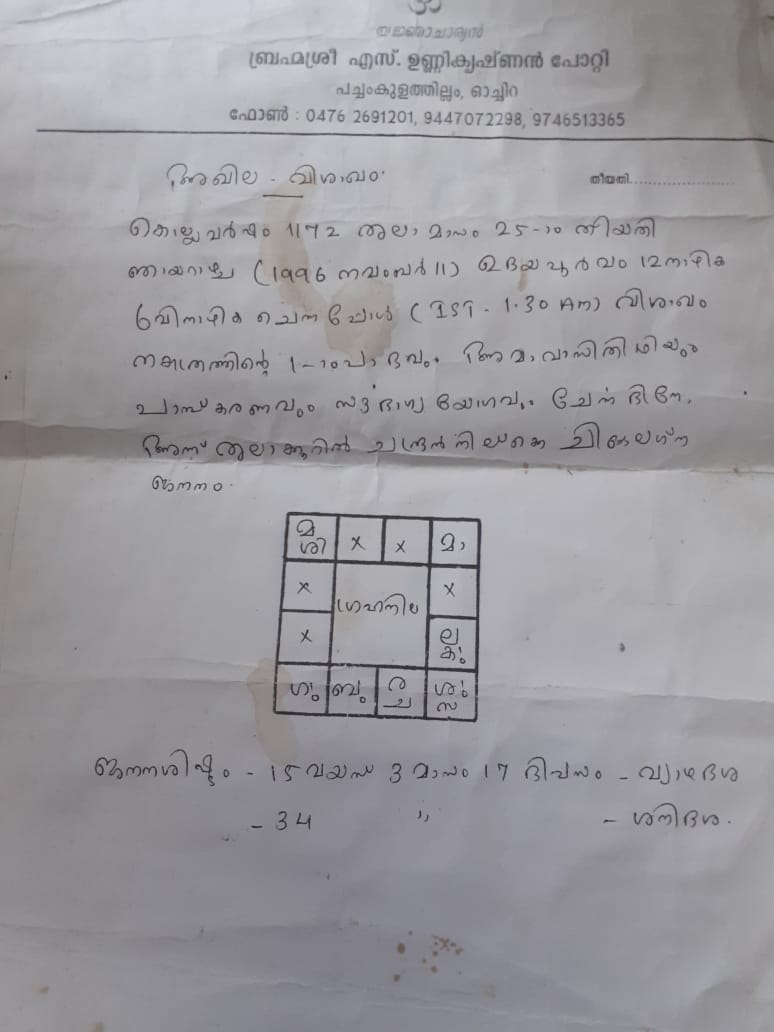 ബ്രഹ്മശ്രീ എസ്. ഉണ്ണികൃഷ്ണൻ പോറ്റി
പച്ചംകുളത്തില്ലം, ഓച്ചിറ
ഫോൺ : 0476 2691201, 9447072298, 9746513365
അഖില - വിശാഖം
തീയതി......................
കൊല്ലവർഷം 1172 തുലാ മാസം 25-ാം തീയതി
ഞായറാഴ്ച (1996 നവംബർ 11) ഉദയപൂർവം 12 നാഴിക
6 വിനാഴിക ചെന്നപ്പോൾ (IST - 1.30 AM) വിശാഖം
നക്ഷത്രത്തിന്റെ 1-ാം പാദവും അമാവാസിതിഥിയും
പാമ്പ്കരണവും സൗഭാഗ്യ യോഗവും ചേർന്ന ദിനേ,
അന്ന് തുലാക്കൂറിൽ ചന്ദ്രൻ നില്ക്കെ ചിങ്ങലഗ്ന
ജനനം.
മ ശി x x മാ
x x
ഗ്രഹനില
x ല കു
ഗു ബു ര ച ശു സ
ജനനശിഷ്ടം - 15 വയസ് 3 മാസം 17 ദിവസം - വ്യാഴദശ
- 34 ,, - ശനിദശ.